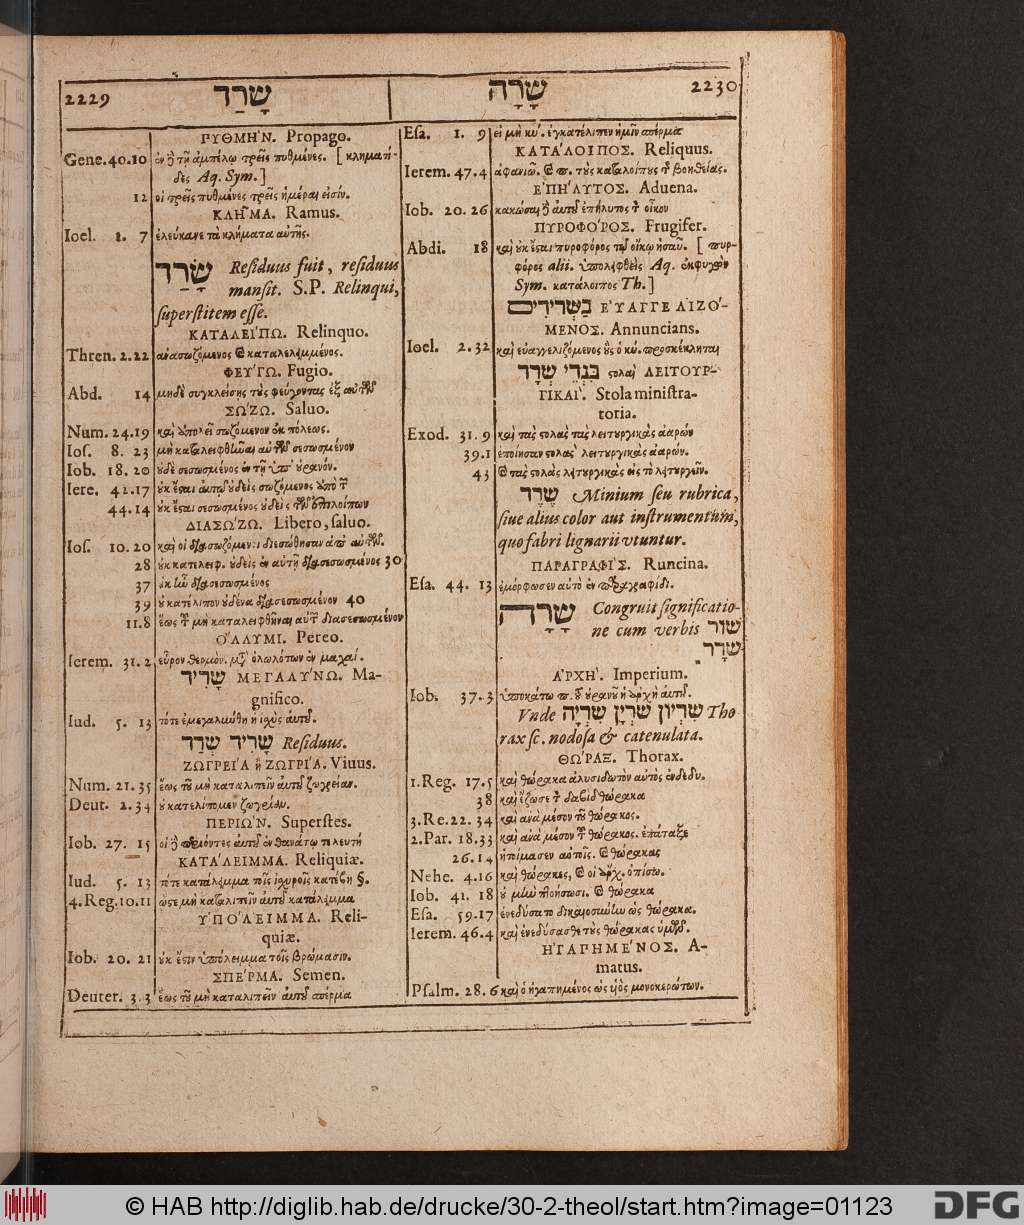 2229 שָׂרַד
שָׂרָה 2230
ΡΥΘΜΗ'Ν. Propago.
Gene. 40. 10 ἐν δὲ τῇ ἀμπέλῳ τρεῖς πυθμένες. [ κληματί-
δες Aq. Sym. ]
12 οἱ τρεῖς πυθμένες τρεῖς ἡμέραι εἰσίν.
ΚΛΗ͂ΜΑ. Ramus.
Ioel. 1. 7 ἐλεύκανε τὰ κλήματα αὐτῆς.
שָׂרַד Residuus fuit, residuus
mansit. S.P. Relinqui,
superstitem esse.
ΚΑΤΑΛΕΙ'ΠΩ. Relinquo.
Thren. 2. 22 ἀνασωζόμενος καὶ καταλελειμμένος.
ΦΕΥ'ΓΩ. Fugio.
Abd. 14 μηδὲ συγκλείσῃς τοὺς φεύγοντας ἐξ αὐτῶν
ΣΩ'ΖΩ. Saluo.
Num. 24. 19 καὶ ἀπολεῖ σωζόμενον ἐκ πόλεως.
Ios. 8. 23 μὴ καταλειφθῆναι αὐτῶν σεσωσμένον
Iob. 18. 20 οὐδὲ σεσωσμένος ἐν τῇ ὑπ' οὐρανόν.
Iere. 42. 17 οὐκ ἔσται αὐτῶν οὐδεὶς σωζόμενος ἀπὸ τῶν
44. 14 οὐκ ἔσται σεσωσμένος οὐδεὶς τῶν ἐπιλοίπων
ΔΙΑΣΩ'ΖΩ. Libero, saluo.
Ios. 10. 20 καὶ οἱ διασωζόμενοι διεσώθησαν ἀπ' αὐτῶν.
28 οὐκ κατελειφ. οὐδεὶς ἐν αὐτῇ διασεσωσμένος 30
37 οὐκ ἦν διασεσωσμένος
39 οὐ κατέλιπον οὐδένα διασεσωσμένον 40
11. 8 ἕως τοῦ μὴ καταλειφθῆναι αὐτῶν διασεσωσμένον
Ο'ΛΛΥΜΙ. Pereo.
Ierem. 31. 2 εὗρον θερμὸν. μετὰ ὀλωλότων ἐν μαχαί.
שָׂרִיד ΜΕΓΑΛΥ'ΝΩ. Ma-
gnifico.
Iud. 5. 13 τότε ἐμεγαλύνθη ἡ ἰσχὺς αὐτοῦ.
שָׂרִיד שְׂרַד Residuus.
ΖΩΓΡΕΙ'Α ἢ ΖΩΓΡΙ'Α. Viuus.
Num. 21. 35 ἕως τοῦ μὴ καταλιπεῖν αὐτοῦ ζωγρείαν.
Deut. 2. 34 οὐ κατελίπομεν ζωγρίαν.
ΠΕΡΙΩ'Ν. Superstes.
Iob. 27. 15 οἱ δὲ περιόντες αὐτοῦ ἐν θανάτῳ τελευτή
ΚΑΤΑ'ΛΕΙΜΜΑ. Reliquiæ.
Iud. 5. 13 τότε κατάλειμμα τοῖς ἰσχυροῖς κατέβη §.
4. Reg. 10. 11 ὥστε μὴ καταλιπεῖν αὐτοῦ κατάλειμμα
Υ'ΠΟ'ΛΕΙΜΜΑ. Reli-
quiæ.
Iob. 20. 21 οὐκ ἔστιν ὑπόλειμμα τοῖς βρώμασιν.
ΣΠΕ'ΡΜΑ. Semen.
Deuter. 3. 3 ἕως τοῦ μὴ καταλιπεῖν αὐτοῦ σπέρμα
Esa. 1. 9 εἰ μὴ κύ. ἐγκατέλιπεν ἡμῖν σπέρμα
ΚΑΤΑ'ΛΟΙΠΟΣ. Reliquus.
Ierem. 47. 4 ἀφανιῶ. καὶ π. τοὺς καταλοίπους τῆς βοηθείας.
Ε'ΠΗ'ΛΥΤΟΣ. Aduena.
Iob. 20. 26 κακώσαι δὲ αὐτοῦ ἐπήλυτος τὸν οἶκον
ΠΥΡΟΦΟ'ΡΟΣ. Frugifer.
Abdi. 18 καὶ οὐκ ἔσται πυροφόρος τῷ οἴκῳ ἠσαῦ. [ πυρ-
φόρος alii. ὑπολειφθεὶς Aq. ἐκφυγὼν
Sym. κατάλοιπος Th. ]
בַּשְּׂרִידִים ΕΥ'ΑΓΓΕΛΙΖΟ'-
ΜΕΝΟΣ. Annuncians.
Ioel. 2. 32 καὶ εὐαγγελιζόμενος οὓς ὁ κύ. προσκέκληται
בִּגְדֵי שְׂרָד στολαὶ ΛΕΙΤΟΥΡ-
ΓΙΚΑΙ'. Stola ministra-
toria.
Exod. 31. 9 καὶ τὰς στολὰς τὰς λειτουργικὰς ἀαρών
39. 1 ἐποίησαν στολὰς λειτουργικὰς ἀαρών.
43 καὶ τὰς στολὰς λειτουργικὰς εἰς τὸ λειτουργεῖν.
שֶׂרֶד Minium seu rubrica,
siue alius color aut instrumentum,
quo fabri lignarii vtuntur.
ΠΑΡΑΓΡΑΦΙ'Σ. Runcina.
Esa. 44. 13 ἐμόρφωσεν αὐτὸ ἐν παραγραφίδι.
שָׂרָה Congruit significatio-
ne cum verbis שׂוּר
שׂרר
ΑΡΧΗ'. Imperium.
Iob. 37. 3 ὑποκάτω π. τοῦ οὐρανοῦ ἡ ἀρχὴ αὐτοῦ.
Vnde שִׂרְיוֹן שִׂרְיָן שִׂרְיָה Tho
rax sc. nodosa & catenulata.
ΘΩ'ΡΑΞ. Thorax.
1. Reg. 17. 5 καὶ θώρακα ἁλυσιδωτὸν αὐτὸς ἐνδεδυ.
38 καὶ ἔζωσε τὸν δαβὶδ θώρακα
3. Re. 22. 34 καὶ ἀνὰ μέσον τοῦ θώρακος.
2. Par. 18. 33 καὶ ἀνὰ μέσον τοῦ θώρακος. ἐπάταξε
26. 14 ἡτοίμασεν αὐτοῖς. καὶ θώρακας
Nehe. 4. 16 καὶ θώρακες, καὶ οἱ ἄρχ. ὀπίσω.
Iob. 41. 18 οὐ μὴ ποιήσωσι. καὶ θώρακα
Esa. 59. 17 ἐνεδύσατο δικαιοσύνην ὡς θώρακα.
Ierem. 46. 4 καὶ ἐνεδύσασθε τοὺς θώρακας ὑμῶν.
Η'ΓΑΠΗΜΕ'ΝΟΣ. A-
matus.
Psalm. 28. 6 καὶ ὁ ἠγαπημένος ὡς υἱὸς μονοκερώτων.
© HAB http://diglib.hab.de/drucke/30-2-theol/start.htm?image=01123
DFG